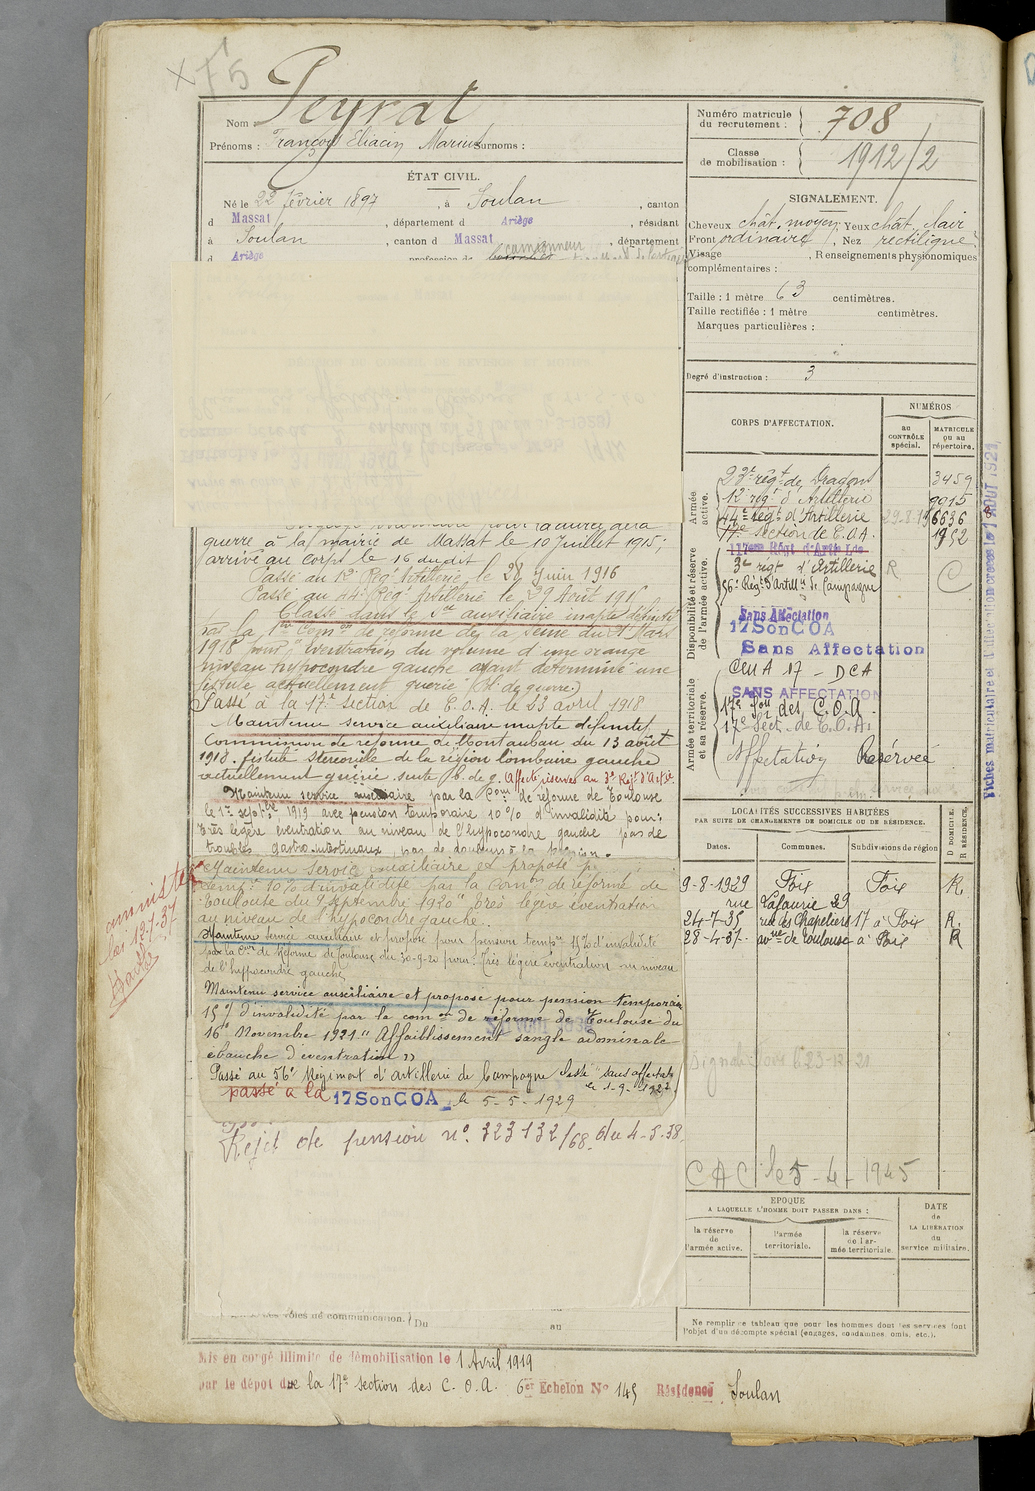 Peyrat
Nom :
Prénoms : François Eliacin Marius Surnoms :
ÉTAT CIVIL.
Né le 22 février 1897, à Soulan, canton
d Massat, département d Ariège, résidant
à Soulan, canton d Massat, département
d Ariège profession de camionneur
Numéro matricule
du recrutement : 708
Classe
de mobilisation : 1912/2
SIGNALEMENT.
Cheveux chât. moyen Yeux chât. clair
Front ordinaire, Nez rectiligne
Visage , Renseignements physionomiques
complémentaires :
Taille : 1 mètre 63 centimètres.
Taille rectifiée : 1 mètre centimètres.
Marques particulières :
Degré d'instruction : 3
CORPS D'AFFECTATION.
NUMÉROS
au
CONTRÔLE
spécial.
MATRICULE
ou au
répertoire.
Armée
active.
23e régt de Dragons 3459
12e régt d'Artillerie 9015
44e régt d'Artillerie 29.8.19 6636
17e Section de C.O.A. 1952
Disponibilité et réserve
de l'armée active.
117eme Régt d'Artie Lde
3e régt d'Artillerie R C
56e Régt d'Artill. de Campagne
Sans Affectation
17 Son COA
Sans Affectation
Armée territoriale
et sa réserve.
Cen A 17 - DCA
SANS AFFECTATION
17e Son des C.O.A.
17e Sect. de C.O.A.
Affectation Réservée
guerre à la mairie de Massat le 10 Juillet 1915;
arrivé au corps le 16 du dit
Passé au 12e Reg. Artillerie le 28 Juin 1916
Passé au 44e Reg. Artillerie le 29 Août 1917
Classé dans le Sce auxiliaire inapte définitif
par la 1ère Comon de réforme de la Seine du 1 Mars
1918 pour "éventration du volume d'une orange
niveau hypocondre gauche ayant déterminé une
fistule actuellement guérie" (Bl. de guerre)
Passé à la 17e section de C.O.A. le 23 avril 1918
Maintenu service auxiliaire inapte définitif
Commission de réforme de Montauban du 13 août
1918. fistule stercorale de la région lombaire gauche
actuellement guérie. suite b. de g. Affecté réserves au 3e Rejt d'Artie.
Maintenu service auxiliaire par la Com. de réforme de Toulouse
le 1er septbre 1919 avec pension temporaire 10 % d'invalidité pour:
très légère éventration au niveau de l'hypocondre gauche pas de
troubles gastro-intestinaux, pas de douleurs à la pression.
Maintenu Service auxiliaire et proposé p.
temp. 10% d'invalidité par la Comon de réforme de
Toulouse du 9 septembre 1920 "très légère éventration
au niveau de l'hypocondre gauche.
Maintenu service auxiliaire et proposé pour pension tempre 15 % d'invalidité
par la Con de Réforme de Toulouse du 30-9-20 pour: Très légère éventration au niveau
de l'hypocondre gauche
Maintenu service auxiliaire et proposé pour pension temporaire
15 % d'invalidité par la comon de réforme de Toulouse du
16 Novembre 1921 "Affaiblissement sangle abdominale
ébauche d'éventration"
Passé au 56e Régiment d'artillerie de Campagne Liste "sans affectation
le 1-9-1927
passé à la 17 Son COA le 5-5-1929
Rejet de pension n° 323132/68 du 4-5-38
amnistié
loi 12-7-37
LOCALITÉS SUCCESSIVES HABITÉES
PAR SUITE DE CHANGEMENTS DE DOMICILE OU DE RÉSIDENCE.
D DOMICILE.
R RÉSIDENCE.
Dates. Communes. Subdivisions de région
9-8-1929 Foix Foix R
rue Lafaurie 29
24-7-35 rue des Chapeliers 17 à Foix R.
28-4-37 avnue de Toulouse à Foix R
CAC le 5-4-1945
ÉPOQUE
A LAQUELLE L'HOMME DOIT PASSER DANS :
la réserve
de
l'armée active.
l'armée
territoriale.
la réserve
de l'ar-
mée territoriale.
DATE
de
LA LIBÉRATION
du
service militaire.
voies de communication. Du au
Ne remplir ce tableau que pour les hommes dont les services font
l'objet d'un décompte spécial (engagés, condamnés, omis, etc.).
Mis en congé illimité de démobilisation le 1 Avril 1919
par le dépôt de la 17e section des C.O.A. 6e Echelon No 145 Résidence Soulan